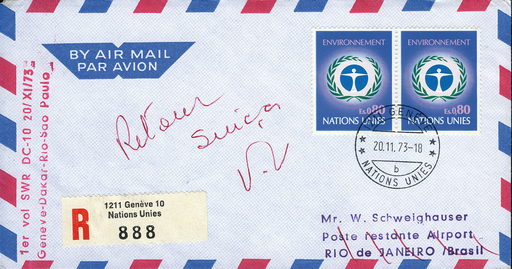 BY AIR MAIL
PAR AVION
1er vol SWR DC-10 20/XI/73
Genève-Dakar-Rio-Sao Paulo
ENVIRONNEMENT
Fs.0,80
NATIONS UNIES
ENVIRONNEMENT
Fs.0,80
NATIONS UNIES
GENÈVE
20.11.73-18
b
NATIONS UNIES
Retour
Suisse
R
1211 Genève 10
Nations Unies
888
Mr. W. Schweighauser
Poste restante Airport
RIO de JANEIRO /Brasil